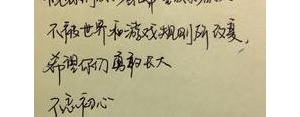 不被世界和游戏规则所改变，
希望你们勇敢长大
不忘初心